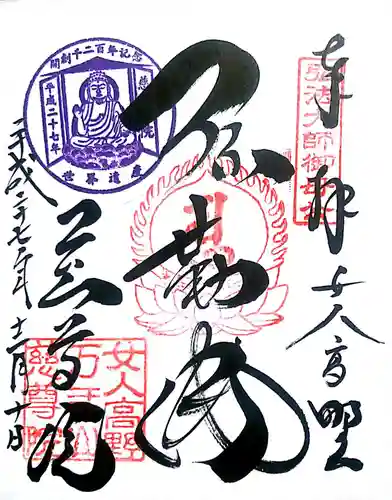 奉拝 女人高野
弘法大師御母公
弥勒
開創千二百年記念
平成二十七年
世界遺産
慈尊院
女人高野
万年山
慈尊院
平成二十七年十一月十日